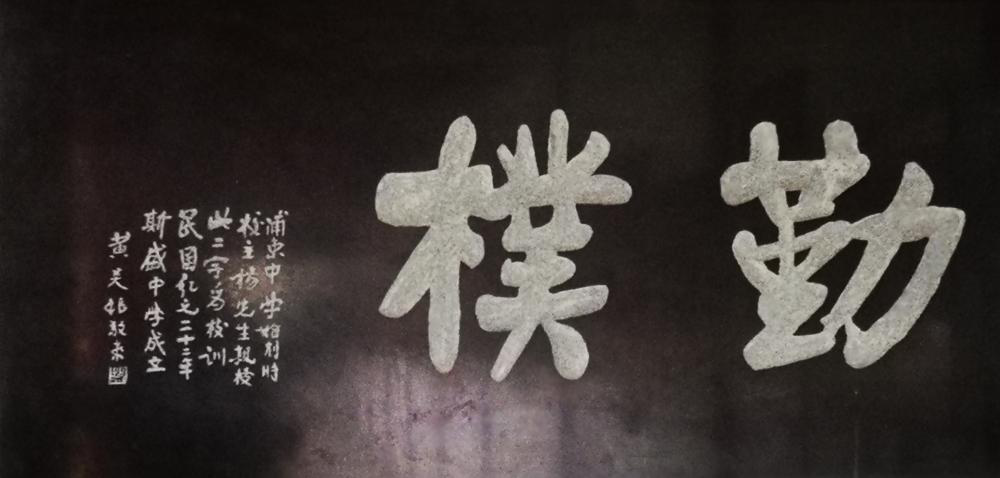 勤樸
浦東中學始創時
校主楊先生親授
此二字爲校訓
民國紀元二十二年
斯盛中學成立
黃炎培敬書